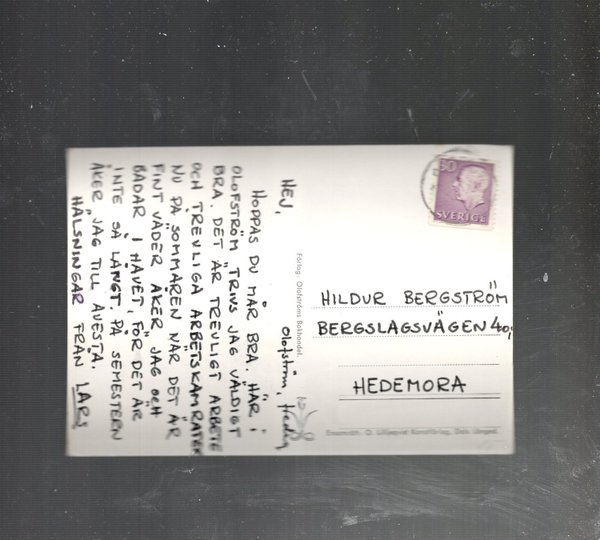 Olofström,
HEJ,
HOPPAS DU MÅR BRA. HÄR I
OLOFSTRÖM TRIVS JAG VÄLDIGT
BRA. DET ÄR TREVLIGT ARBETE
OCH TREVLIGA ARBETSKAMRATER
NU PÅ SOMMAREN NÄR DET ÄR
FINT VÄDER ÅKER JAG OCH
BADAR I HAVET, FÖR DET ÄR
INTE SÅ LÅNGT. PÅ SEMESTERN
ÅKER JAG TILL AVESTA.
HÄLSNINGAR FRÅN LARS
Förlag: Olofströms Bokhandel.
50
SVERIGE
HILDUR BERGSTRÖM
BERGSLAGSVÄGEN 40
HEDEMORA
Ensamrätt. O. Lilljeqvist Konstförlag, Dals Långed.